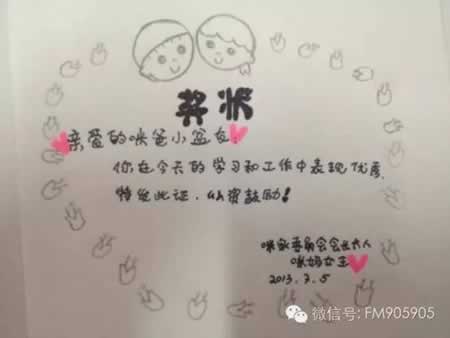 奖状
亲爱的咪爸小盆友:
你在今天的学习和工作中表现优秀,
特发此证,以资鼓励!
咪家委员会会长大人
咪妈女王
2013.7.5
微信号:FM905905